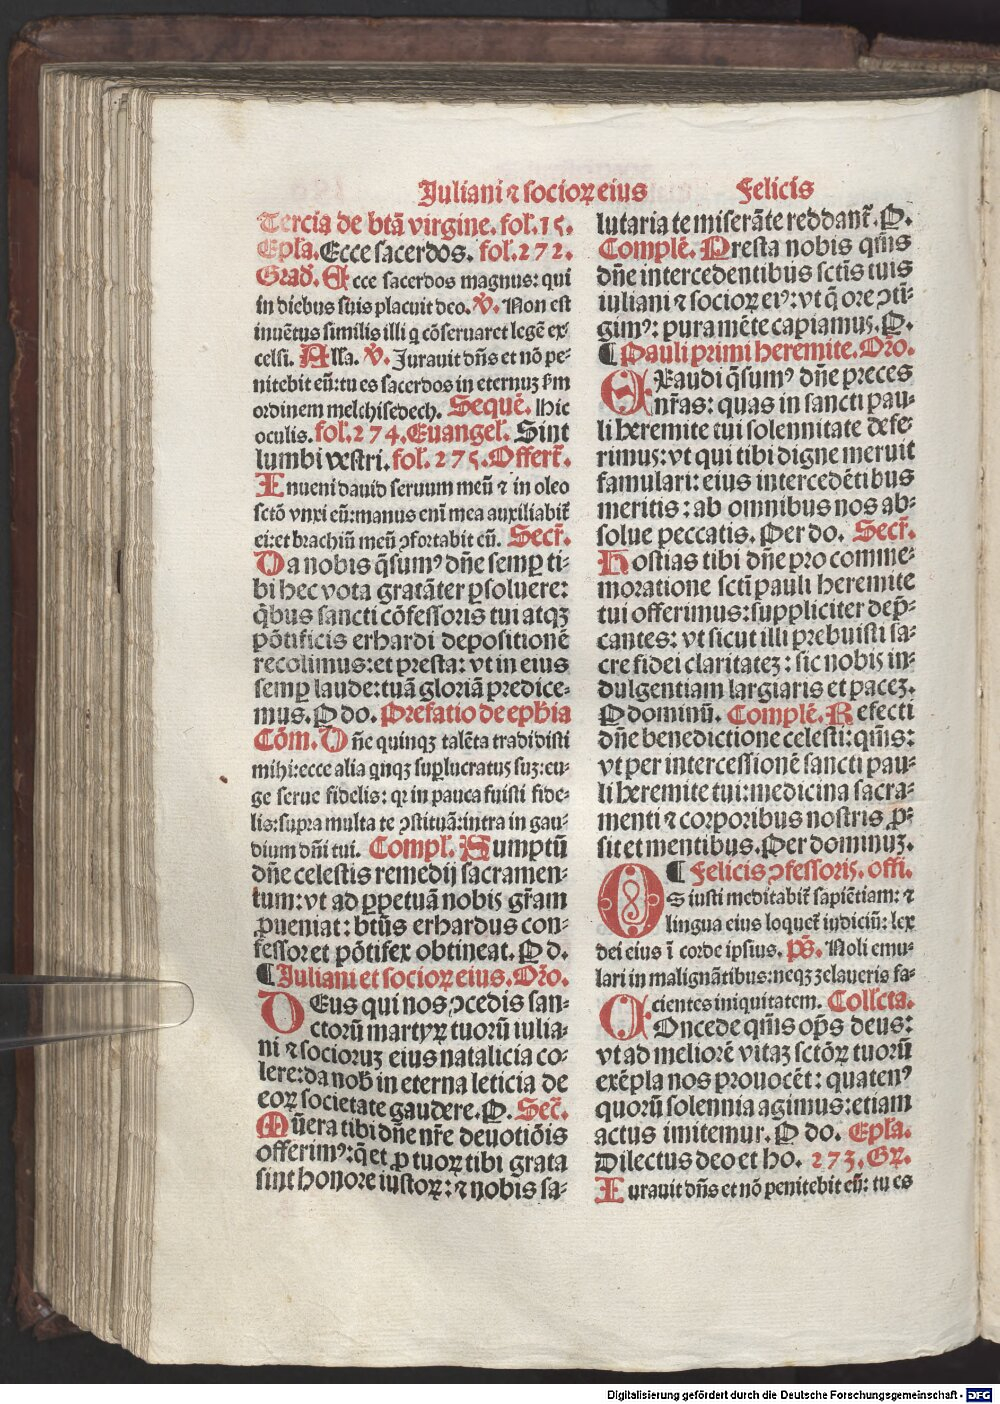 Juliani ⁊ socioꝝ eius Felicis
Tercia de btã virgine. fol. 15.
Epl̃a. Ecce sacerdos. fol. 272.
Grad̃. Ecce sacerdos magnus: qui
in diebus suis placuit deo. ꝟ. Non est
inuẽtus similis illi q cõseruaret legẽ ex⸗
celsi. Alla. ꝟ. Jurauit dñs et nõ pe⸗
nitebit eũ: tu es sacerdos in eternuȝ ẜm
ordinem melchisedech. Sequẽ. Hic
oculis. fol. 274. Euangel̃. Sint
lumbi vestri. fol. 275. Offert̃.
Inueni dauid seruum meũ ⁊ in oleo
sctõ vnxi eũ: manus eni mea auxiliabit̃
ei: et brachiũ meũ ꝯfortabit eũ. Secr̃.
Da nobis q̃sumꝰ dñe semꝑ ti⸗
bi hec vota gratãter ꝑsoluere:
q̃bus sancti cõfessoris tui atqȝ
põtificis erhardi depositionẽ
recolimus: et presta: vt in eius
semꝑ laude: tuã gloriã predice⸗
mus. P do. Prefatio de eph̃ia
Cõm. Dñe quinqȝ talẽta tradidisti
mihi: ecce alia qnqȝ suꝑlucratus suȝ: eu⸗
ge serue fidelis: qꝛ in pauca fuisti fide⸗
lis: supra multa te ꝯstituã: intra in gau⸗
dium dñi tui. Compl̃. Sumptũ
dñe celestis remedij sacramen⸗
tum: vt ad ꝑpetuã nobis gr̃am
ꝓueniat: btũs erhardus con⸗
fessor et põtifex obtineat. P d.
¶ Juliani et socioꝝ eius. Or̃o.
DEus qui nos ꝯcedis san⸗
ctorũ martyꝝ tuorũ iulia⸗
ni ⁊ socioruȝ eius natalicia co⸗
lere: da nob̃ in eterna leticia de
eoꝝ societate gaudere. P. Sec̃.
Mũera tibi dñe nr̃e deuotiõis
offerimꝰ: q̃ et ꝓ tuoꝝ tibi grata
sint honore iustoꝝ: ⁊ nobis sa⸗
lutaria te miserãte reddant̃. P.
Complẽ. Presta nobis qm̃s
dñe intercedentibus sctĩs tuis
iuliani ⁊ socioꝝ eiꝰ: vt q̃ ore ꝯti⸗
gimꝰ: pura mẽte capiamus. P.
¶ Pauli primi heremite. Or̃o.
EXaudi q̃sumꝰ dñe preces
nr̃as: quas in sancti pau⸗
li heremite tui solennitate defe⸗
rimus: vt qui tibi digne meruit
famulari: eius intercedẽtibus
meritis: ab omnibus nos ab⸗
solue peccatis. Per do. Secr̃.
Hostias tibi dñe pro comme⸗
moratione sctĩ pauli heremite
tui offerimus: suppliciter dep̃⸗
cantes: vt sicut illi prebuisti sa⸗
cre fidei claritateȝ: sic nobis in⸗
dulgentiam largiaris et paceȝ.
P dominũ. Complẽ. Refecti
dñe benedictione celesti: qm̃s:
vt per intercessionẽ sancti pau⸗
li heremite tui: medicina sacra⸗
menti ⁊ corporibus nostris ꝓ⸗
sit et mentibus. Per dominuȝ.
¶ Felicis ꝯfessoris. offi.
OS iusti meditabit̃ sapiẽtiam: ⁊
lingua eius loquet̃ iudiciũ: lex
dei eius ĩ corde ipsius. pš. Noli emu⸗
lari in malignãtibus: neqȝ zelaueris fa⸗
cientes iniquitatem. Coll̃cta.
COncede qm̃s op̃s deus:
vt ad meliorẽ vitaȝ sctõꝝ tuorũ
exẽpla nos prouocẽt: quatenꝰ
quorũ solennia agimus: etiam
actus imitemur. P do. Epl̃a.
Dilectus deo et ho. 273. Gꝝ.
Iurauit dñs et nõ penitebit eũ: tu es
Digitalisierung gefördert durch die Deutsche Forschungsgemeinschaft - DFG